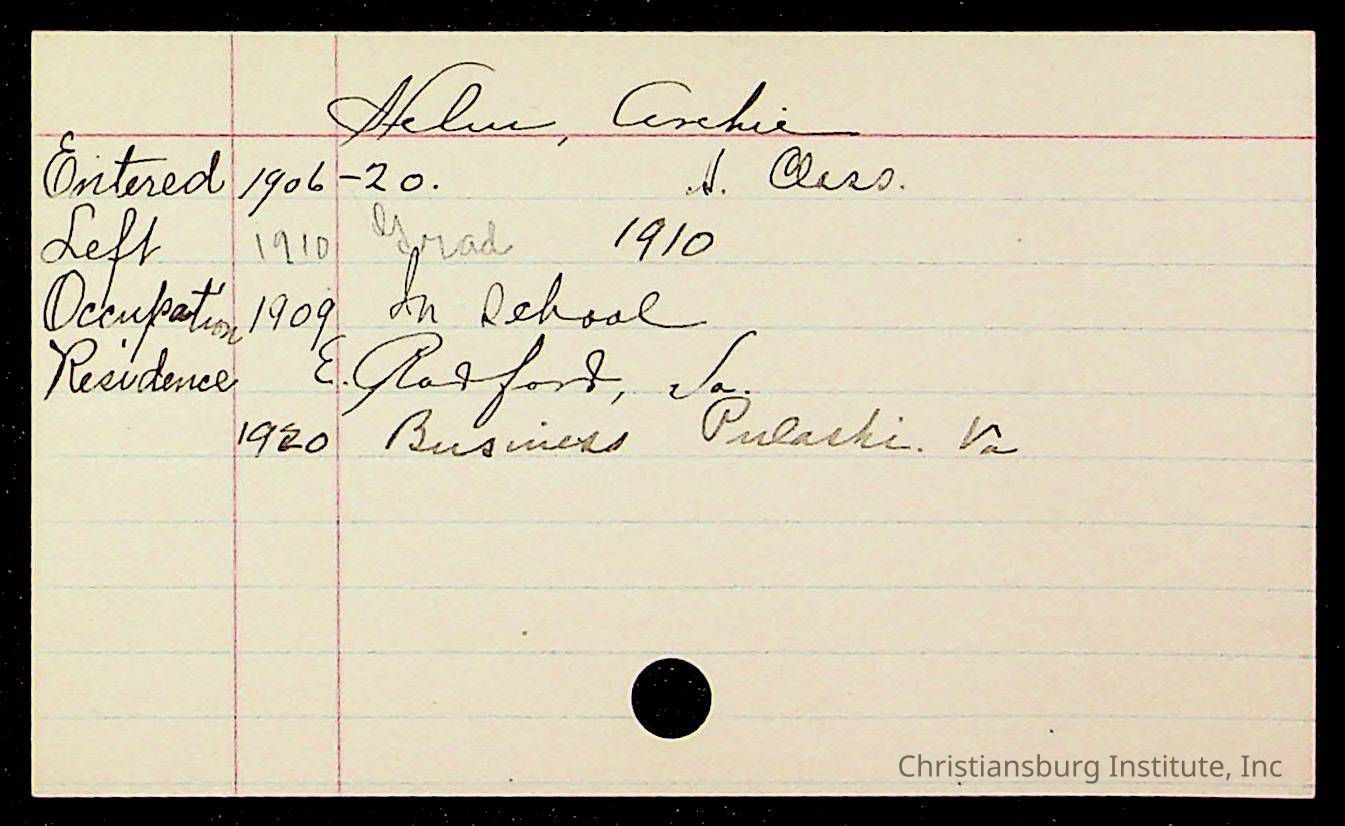 Helm, Archie
Entered 1906 -20. S. Class.
Left 1910 Grad 1910
Occupation 1909 In School
Residence E. Radford, Va.
1920 Business Pulaski. Va
Christiansburg Institute, Inc